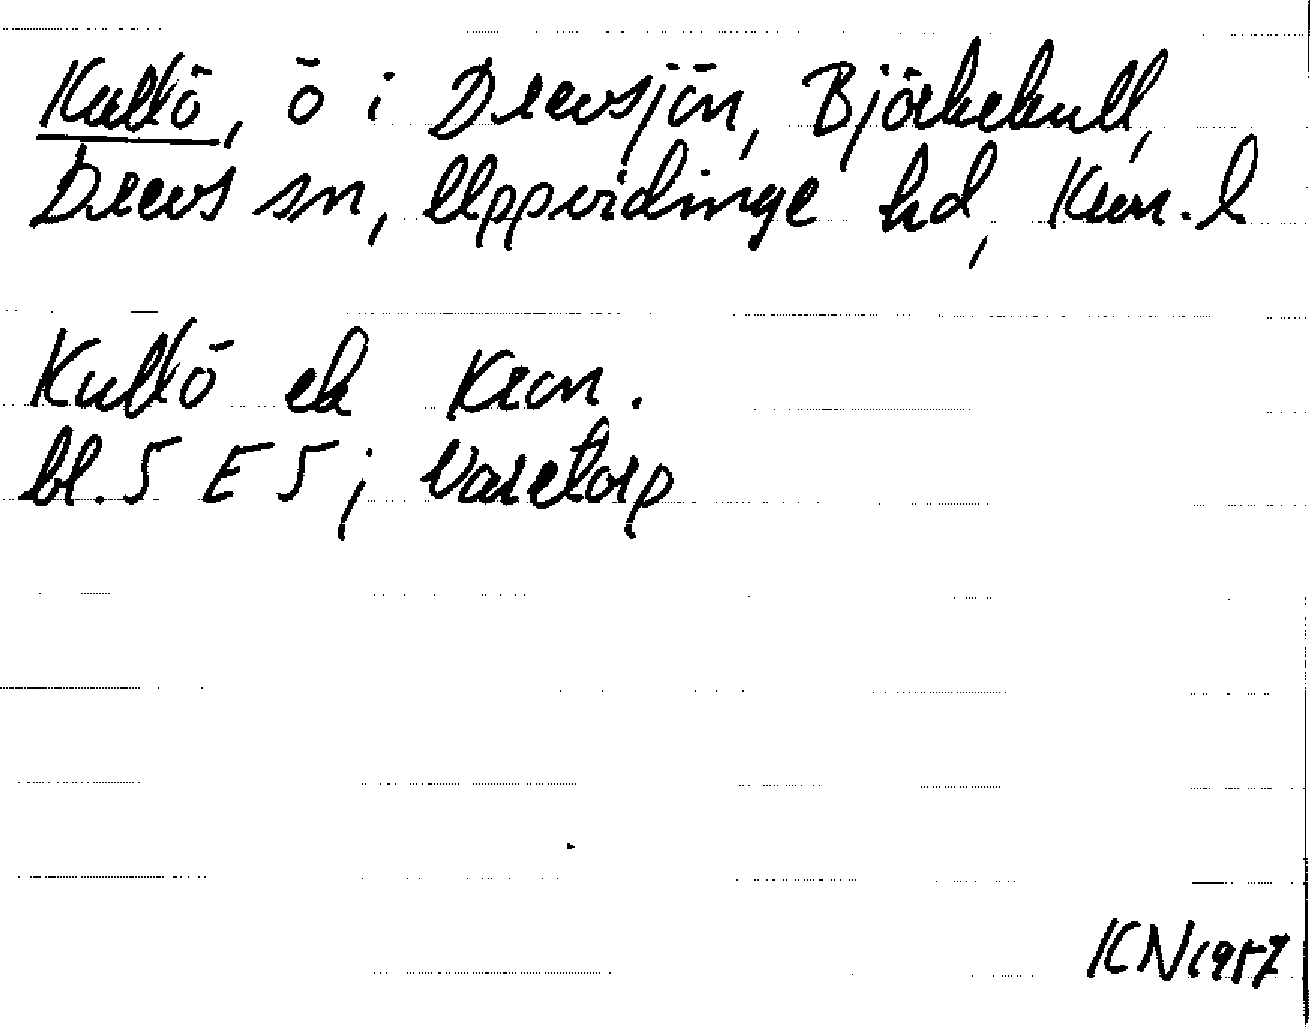 Kullö, ö i Drevsjön, Björkekull,
Drevs sn, Uppvidinge hd, Kron. l
Kullö ek Kron.
bl. 5 E 5; Varetorp
KN 1957